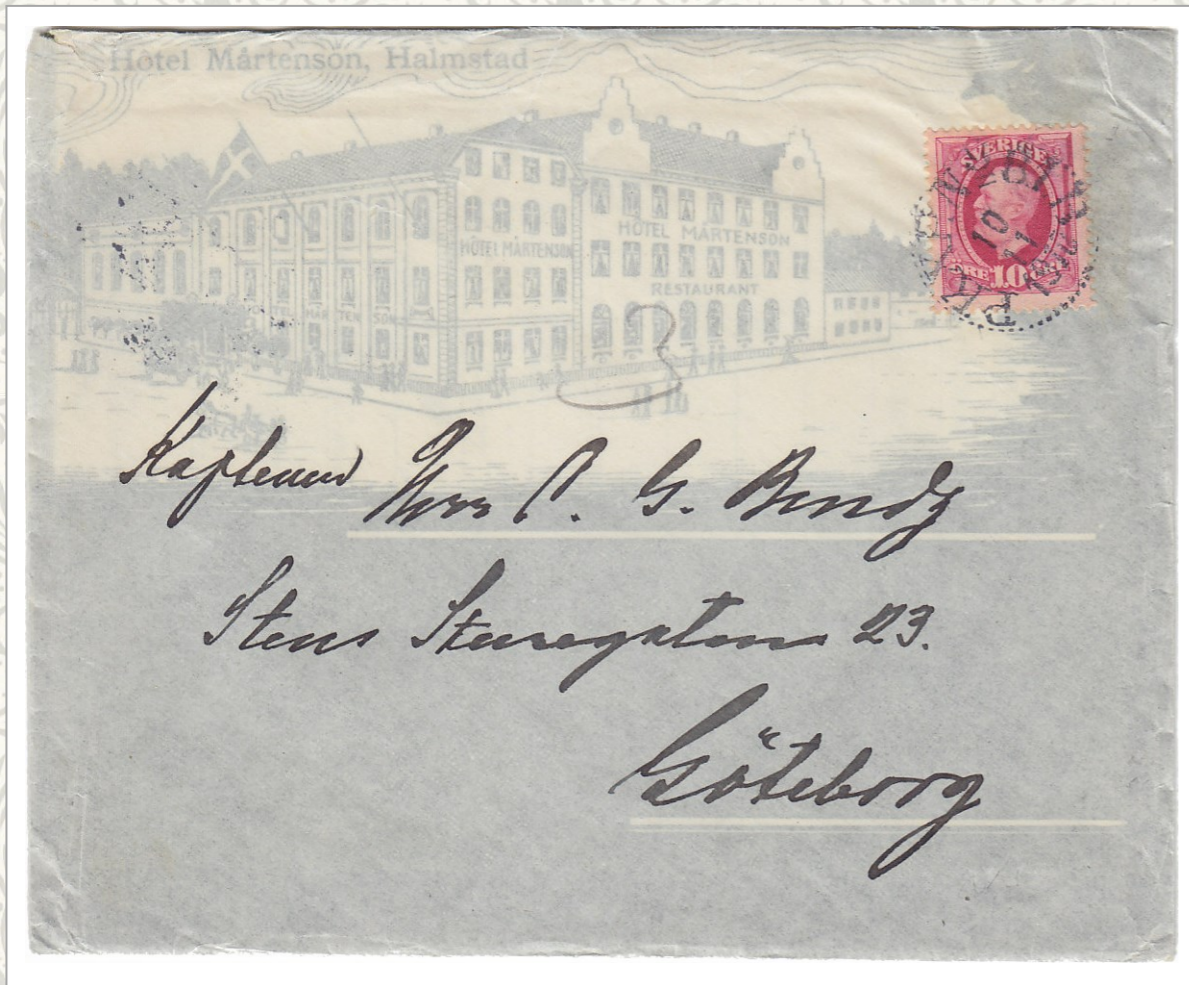 Hôtel Mårtenson, Halmstad
HÔTEL MÅRTENSON
HÔTEL MÅRTENSON
RESTAURANT
MÅRTENSON
SVERIGE
10
11
ÖRE 10 ÖRE
3
Kaptenen Herr P. G. Bendz
Stens Sturegatan 23.
Göteborg